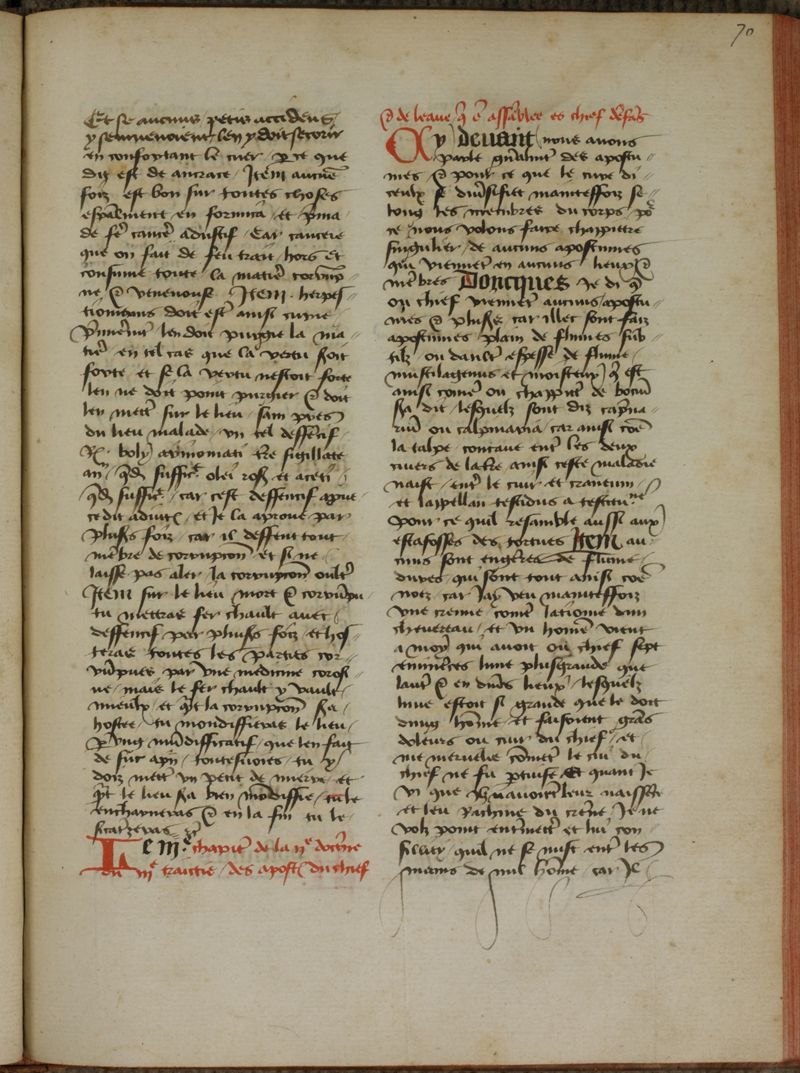 70
Et se aucuns petis accidens
y seurvenoient len y doit secorir
en confortant le cuer / et ce que
dis est de antrace / Item aucune
foiz est bon sur toutes choses
espalment en formica / et prima
de fer cautere adustif / Car cautere
que on fait de feu trait hors et
consume toute la matiere corrump
ue et venenouse / Item herpes
tiomenus doit estre ainsi curee
Premierement len doit purgier la ma
tiere en tel cas que la vertu soit
forte / et se la vertu nestoit forte
len ne doit point purgier et doit
len mettre sur le lieu / sain pres
du lieu malade / un tel deffensif
Rx boly armoniaci terre sigillate
an quod suffit olei ros et aceti
quod suffit / car cest deffensif
ce dit / et je la aprove par
plusrs foiz / car il deffent tout
membre de corrupcon et si ne
laisse pas aler la corrupcon oultre
Item sur le lieu mort et corrumpu
tu mettras fer chault avec
deffensif par plusrs foiz / et hos
teras toutes les parties cor
rumpues par une medicine corosi
ve / mais le fer chault y vault
mieulx / et quant la corrupcon sera
hostee / tu mondiffieras le lieu
par ung mundificatif / que len fait
de suc apii / toutesvoies tu y
dois mettre un petit de mierre / et
quant le lieu sera bien mondiffie / tu le
encharneras et en la fin tu le
sicatrizeras
Le IIIe chapitre de la IIe doctrine
du IIIe traictie / des apost du chief
et de leaue qui est assemblee es chief denfans
Cy devant nous avons
parle des apostu
mes et pour ce que le cure di
ceulx se diversifiet manifestes foiz se
long les membres du corps / pour
ce nous volons faire chappitre
singulier / de aucuns apostumes
qui viennent en aucuns lieux et
membres Doncques je di que
ou chief viennent aucuns apostu
mes et plusrs car illec sont faiz
apostumes plain de flumes sub
tilz ou daultre espesse de flume
muscilagenus et moisteux / qui est
ainsi comme ou chappitre de bocium
sera dit / lesquelz sont diz
ou calpinaria / car ainsi come
la talpe contaue entre les deux
cuers de la terre ainsi ceste maladie
naist entre le cuir et craneum
et lappellan testudus a testitudine
pour ce quil resamble aussi aux
escafosses des tortues Item au
cuns sont engendres de flume
dures qui sont tout ainsi come
noiz / car jay veu maintesfoiz
une creme / come dun
chevereau / et un homme vient
a moy qui avoit ou chief sept
eminences lune plus grande que
lautre et en divers lieux / lesquelz
lune estoit si grande que le doit
dung homme / et faisoient grans
doleurs ou cuir du chief / et
me merveille coment le cuir du
chief ne fu pertuise Et quant je
vi que leur naissance
et leu racine du crane je ne
volz point entremettre et lui con
sillay quil ne se mist entre les
mains de nul home / car il